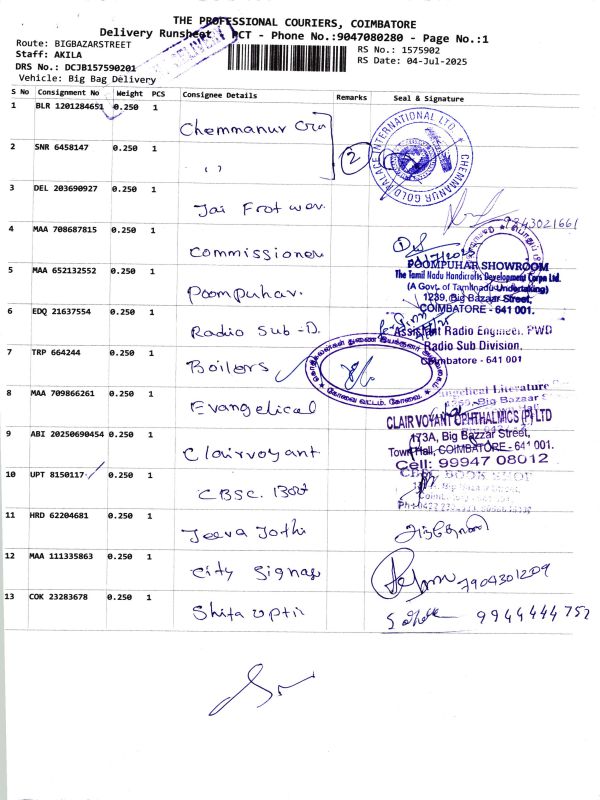 THE PROFESSIONAL COURIERS, COIMBATORE
Delivery Runsheet PCT - Phone No.:9047080280 - Page No.:1
Route: BIGBAZARSTREET
Staff: AKILA
DRS No.: DCJB157590201
Vehicle: Big Bag Delivery
RS No.: 1575902
RS Date: 04-Jul-2025
DELIVERY
S No Consignment No Weight PCS Consignee Details Remarks Seal & Signature
1 BLR 1201284651 0.250 1 Chemmanur
2 SNR 6458147 0.250 1 ,, 2
CHEMMANUR GOLD PALACE INTERNATIONAL LTD.
3 DEL 203690927 0.250 1 Jai
9843021661
4 MAA 708687815 0.250 1 Commissioner
5 MAA 652132552 0.250 1 Poompuhar.
POOMPUHAR SHOWROOM
The Tamil Nadu Handicrafts Development Corpn Ltd.
(A Govt. of Tamilnadu Undertaking)
1239, Big Bazaar Street,
COIMBATORE - 641 001.
6 EDQ 21637554 0.250 1 Radio Sub-D.
Assistant Radio Engineer, PWD
Radio Sub Division,
Coimbatore - 641 001
7 TRP 664244 0.250 1 Boilers
கோவை வட்டம், கோவை.
8 MAA 709866261 0.250 1 Evangelical
Evangelical Literature
Big Bazaar S
9 ABI 20250690454 0.250 1 Clairvoyant
CLAIR VOYANT OPHTHALMICS (P) LTD
173A, Big Bazzar Street,
Town Hall, COIMBATORE - 641 001.
Cell: 99947 08012
10 UPT 8150117 0.250 1 CBSC.
BOOK SHOP
Big Bazaar Street,
11 HRD 62204681 0.250 1 Jeeva Jothi
12 MAA 111335863 0.250 1 City Signas
7904301209
13 COK 23283678 0.250 1 Shifa opti
9944444752